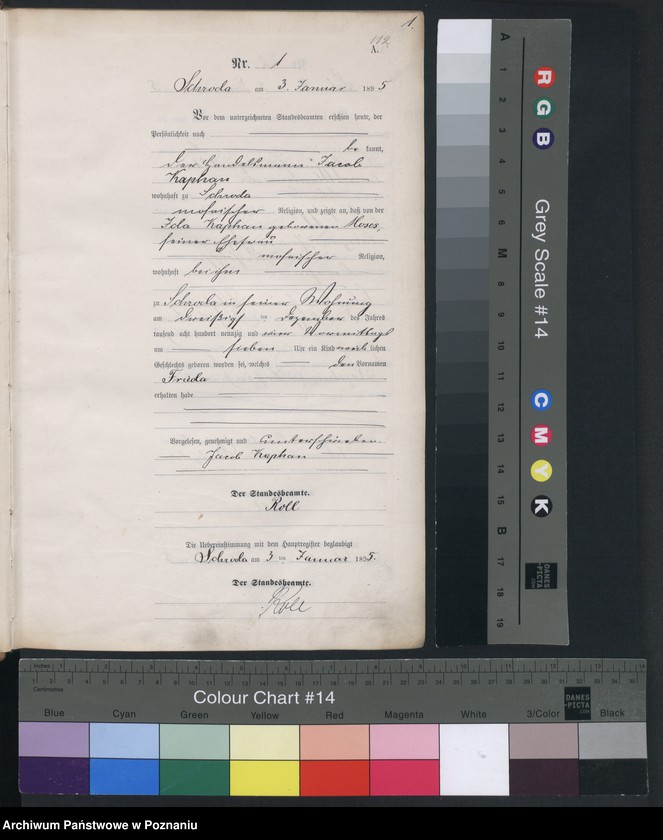 1.
192.
A.
Nr. 1
Schroda am 3. Januar 1895
Vor dem unterzeichneten Standesbeamten erschien heute, der
Persönlichkeit nach
be kannt,
der Handelsmann Jacob
Kaphan
wohnhaft zu Schroda
mosaischer Religion, und zeigte an, daß von der
Ida Kaphan geborenen Moses,
seiner Ehefrau
mosaischer Religion,
wohnhaft bei ihm
zu Schroda in seiner Wohnung
am dreißigsten Dezember des Jahres
tausend acht hundert neunzig und vier Vormittags
um sieben Uhr ein Kind weib lichen
Geschlechts geboren worden sei, welches den Vornamen
Frieda
erhalten habe
Vorgelesen, genehmigt und unterschrieben
Jacob Kaphan
Der Standesbeamte.
Roll
Die Uebereinstimmung mit dem Hauptregister beglaubigt
Schroda am 3 ten Januar 1895.
Der Standesbeamte.
Roll
A 1 2 3 4 5 6 M 8 9 10 11 12 13 14 15 B 17 18 19
R G B
Grey Scale #14
C M Y K
DANES
PICTA
.COM
Inches 1 2 3 4 5 6 7 8 9 10 11 12 13 14
Centimetres 1 2 3 4 5 6 7 8 9 10 11 12 13 14 15 16 17 18 19 20 21 22 23 24 25 26 27 28 29 30 31 32 33 34 35
Colour Chart #14
DANES
PICTA
.COM
Blue Cyan Green Yellow Red Magenta White 3/Color Black
Archiwum Państwowe w Poznaniu